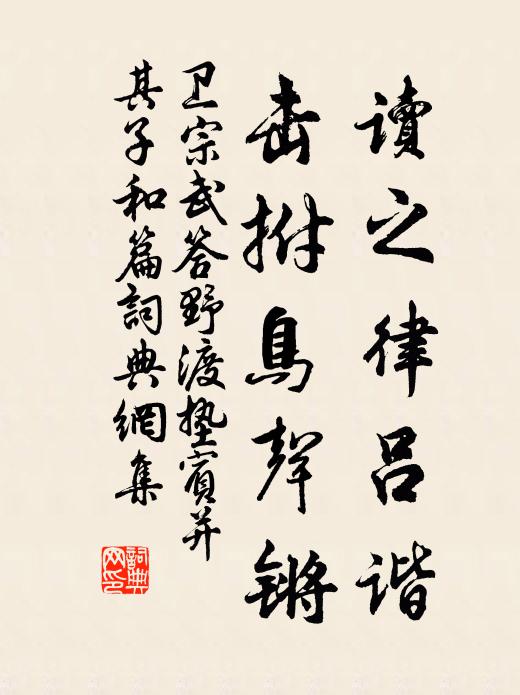 讀之律呂諧
击拊鳥聲锵
卫宗武答野渡墊賓并
其子和篇詞典網集
詞典网印